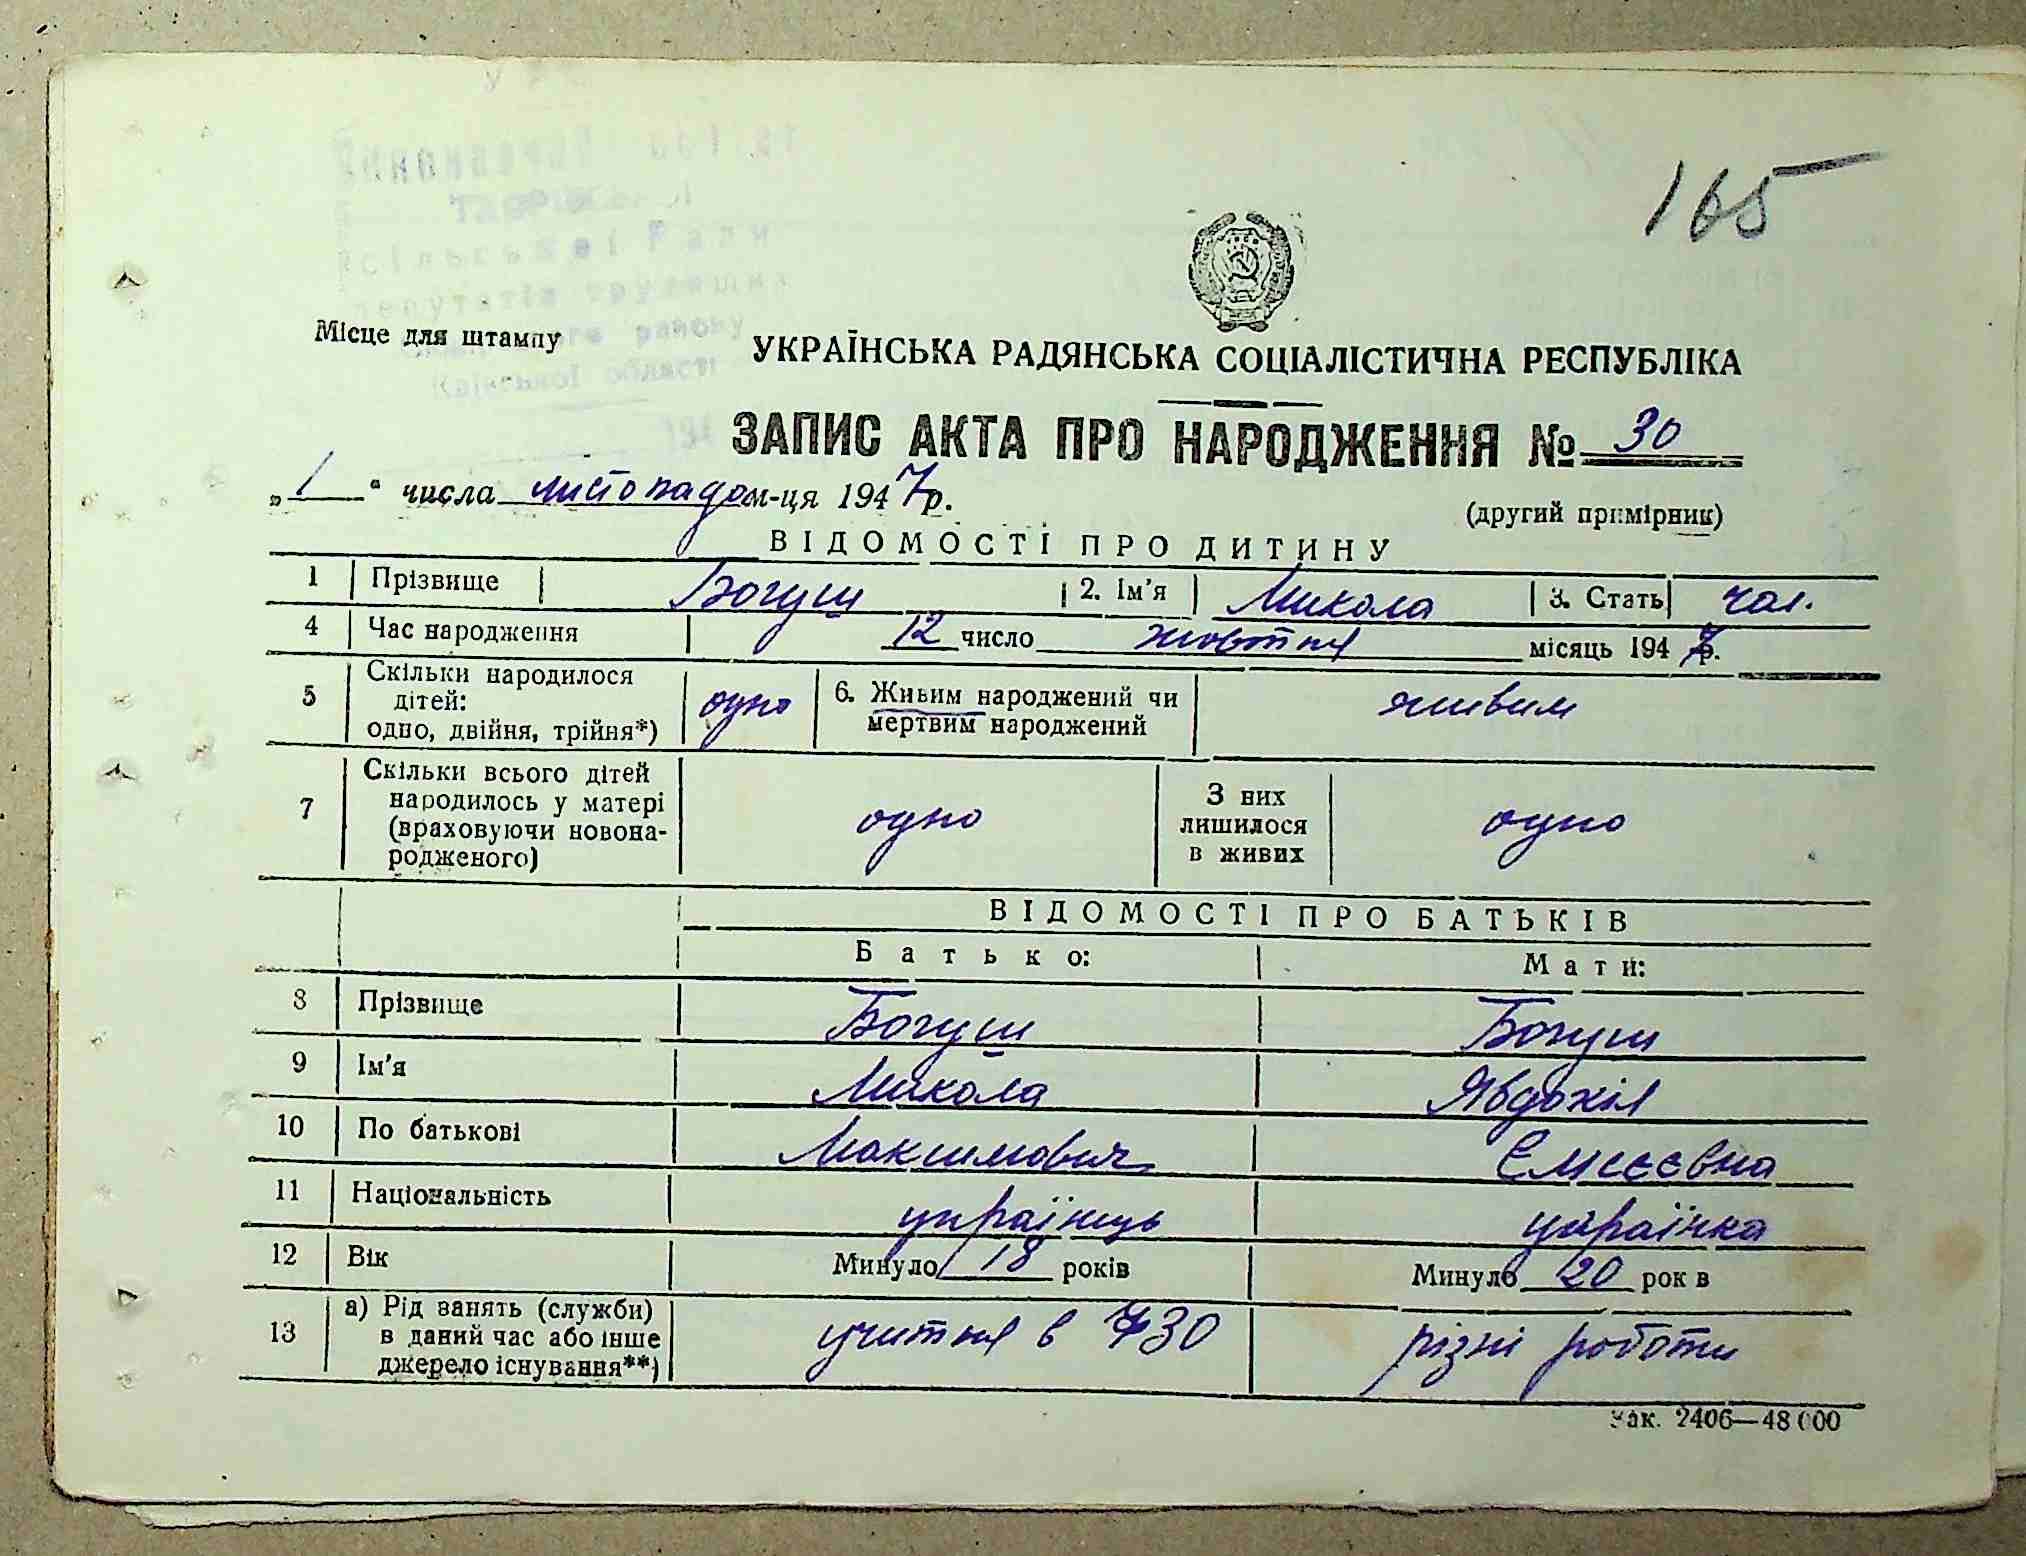 165
сільської Ради
депутатів трудящих
району
Київської області
Місце для штампу
УКРАЇНСЬКА РАДЯНСЬКА СОЦІАЛІСТИЧНА РЕСПУБЛІКА
ЗАПИС АКТА ПРО НАРОДЖЕННЯ № 30
„1“ числа листопада м-ця 1947 р.
(другий примірник)
ВІДОМОСТІ ПРО ДИТИНУ
1 Прізвище Богуш 2. Ім'я Микола 3. Стать чол.
4 Час народження 12 число жовтня місяць 1947 р.
5 Скільки народилося дітей: одно, двійня, трійня*) одно 6. Живим народжений чи мертвим народжений живим
7 Скільки всього дітей народилось у матері (враховуючи новонародженого) одно З них лишилося в живих одно
ВІДОМОСТІ ПРО БАТЬКІВ
Батько: Мати:
8 Прізвище Богуш Богуш
9 Ім'я Микола Явдохія
10 По батькові Максимович Єлисєєвна
11 Національність українець українка
12 Вік Минуло 18 років Минуло 20 рок в
13 а) Рід занять (служби) в даний час або інше джерело існування**) учитня в ЖЗО різні роботи
Зак. 2406—48000